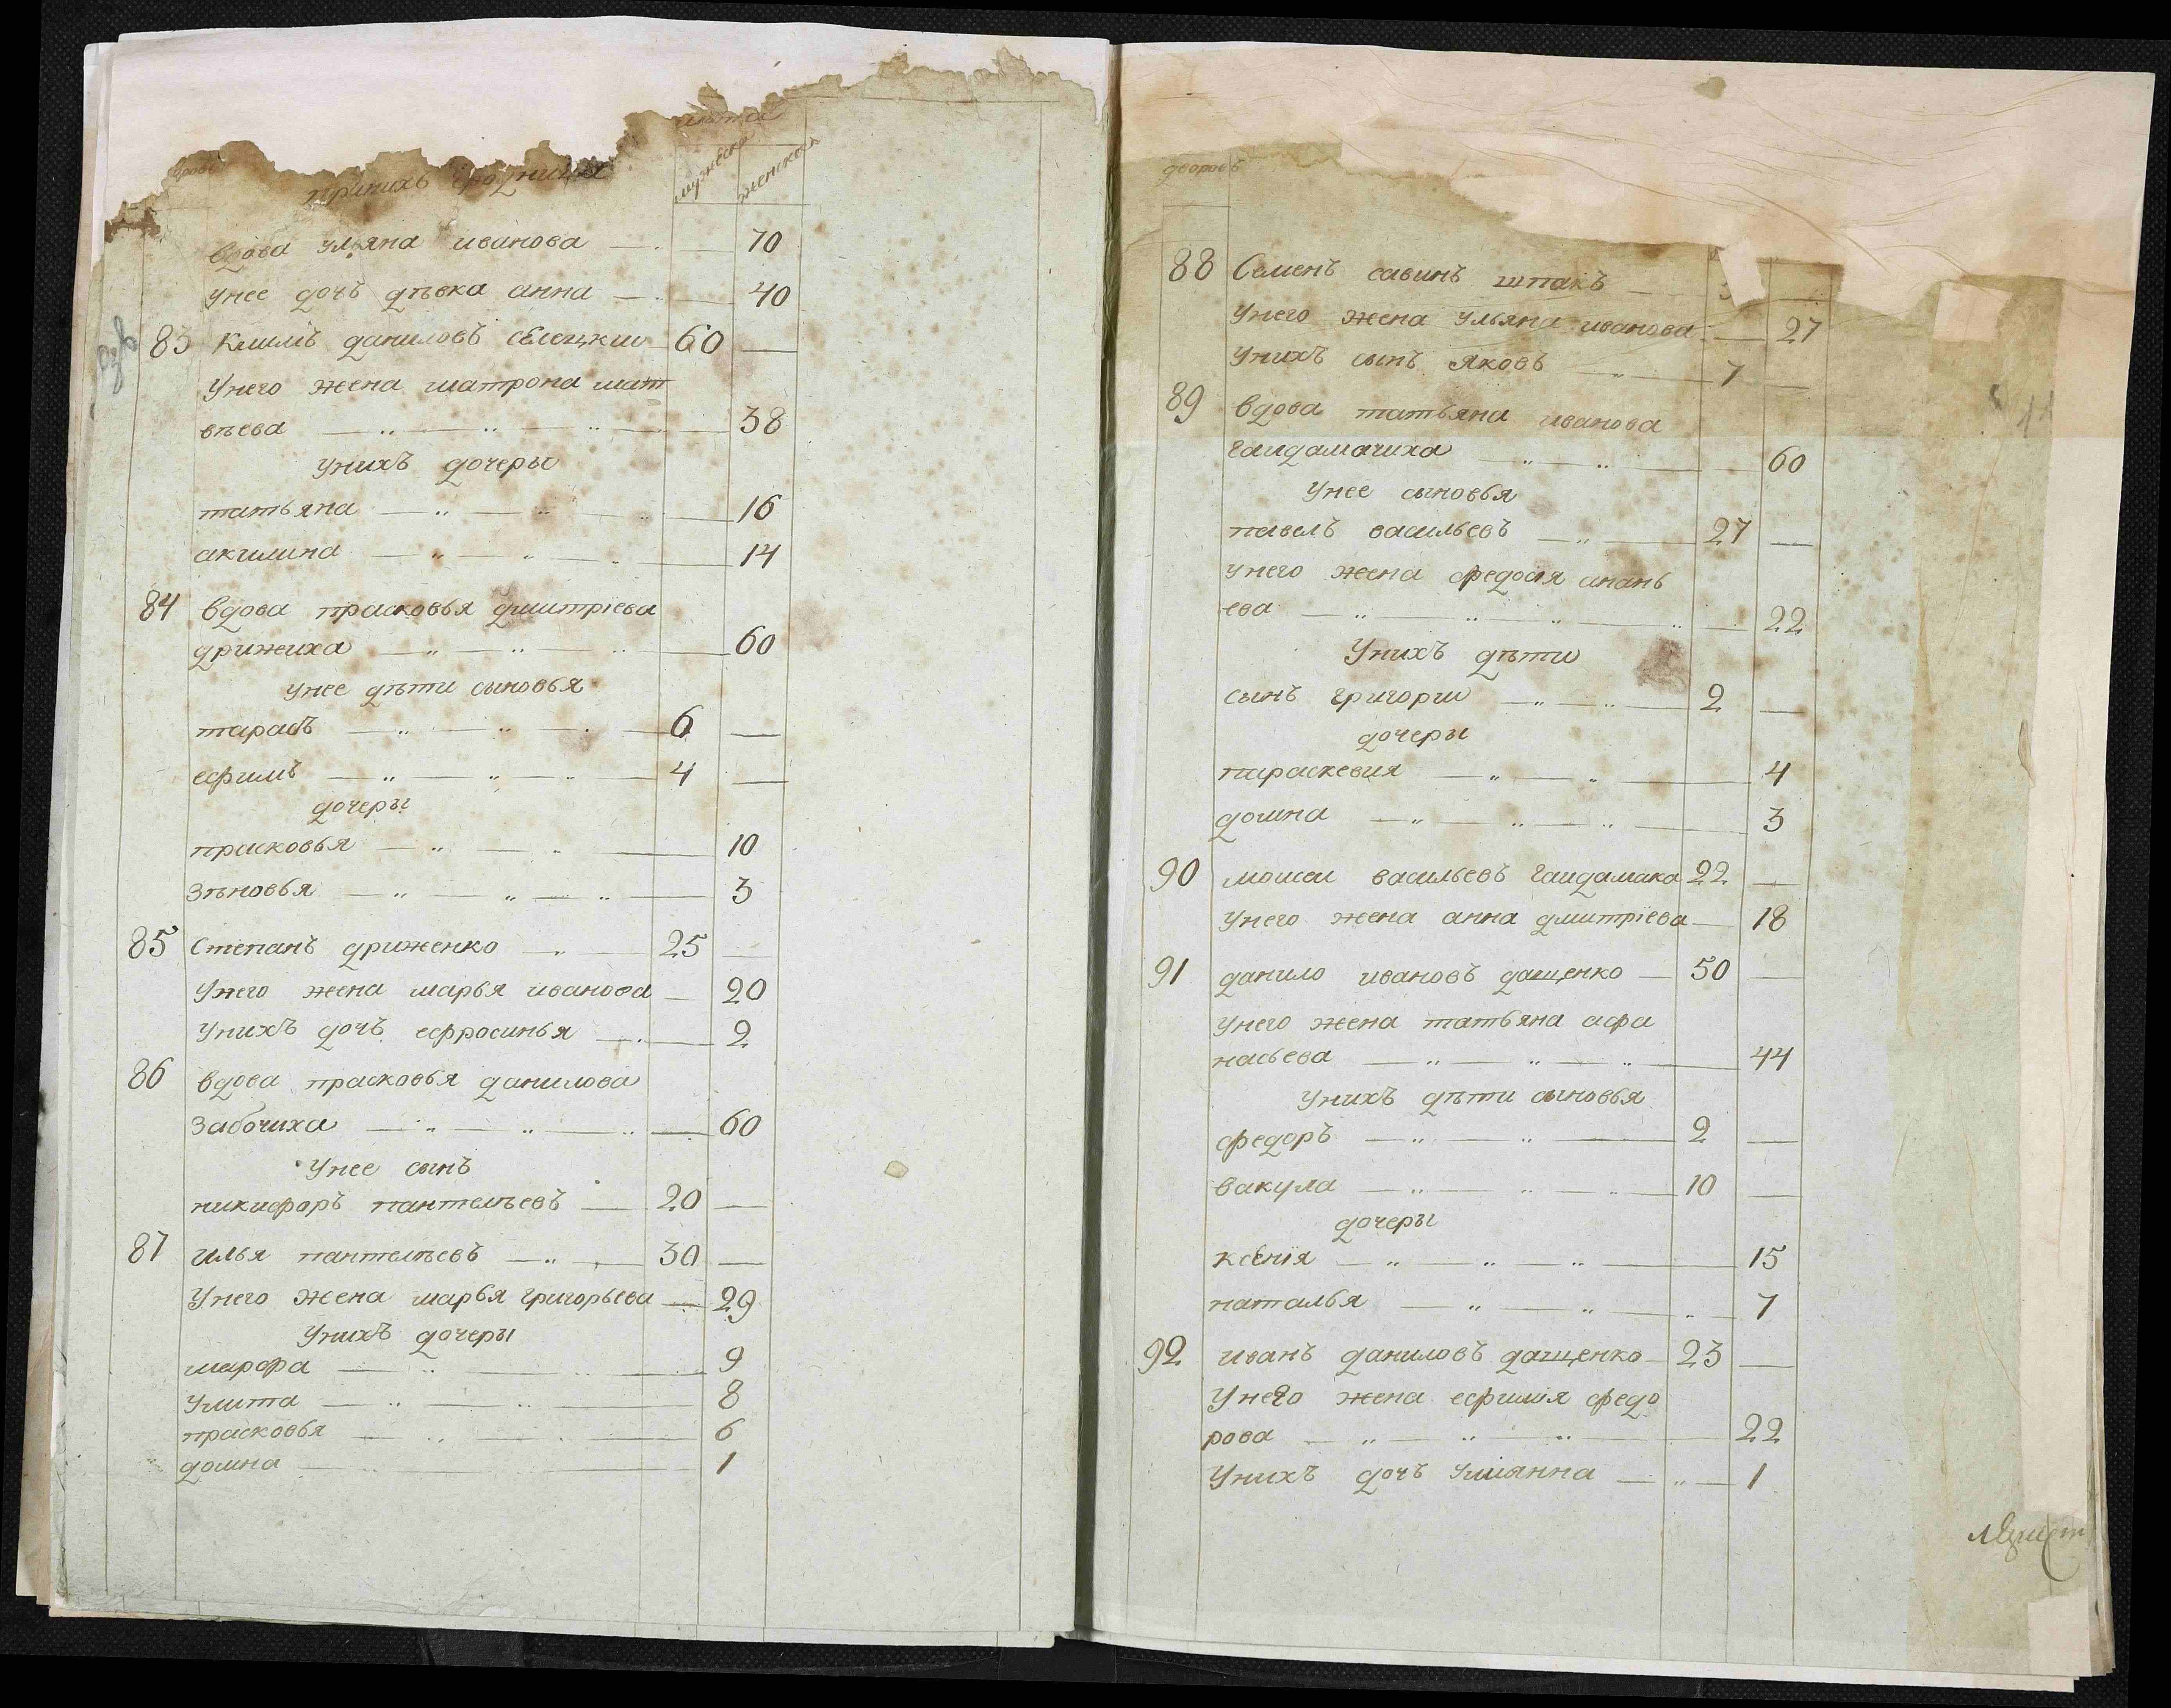 лѣта
мужеска
женска
вдова ульяна иванова 70
унее дочъ дѣвка анна 40
83 Климъ даниловъ селецкии 60
Унего жена матрона мат
вѣева 38
унихъ дочеры
татьяна 16
акилина 14
84 вдова прасковья дмитрїева
дрижиха 60
унее дѣти сыновья
тарасъ 6
ефимъ 4
дочеры
прасковья 10
зѣновья 3
85 Степанъ дриженко 25
Унего жена марья иванова 20
Унихъ дочъ ефросинья 2
86 вдова прасковья данилова
забочиха 60
Унее сынъ
никифоръ пантелѣевъ 20
87 илья пантелѣевъ 30
Унего жена марья григорьева 29
Унихъ дочеры
марфа 9
улита 8
прасковья 6
домна 1
дворовъ
88 Семенъ савинъ шпакъ
Унего жена ульяна иванова 27
Унихъ сынъ яковъ 7
89 вдова татьяна иванова
гаидамачиха 60
Унее сыновья
павелъ васильевъ 27
унего жена федосїя анань
ева 22
Унихъ дѣти
сынъ григории 2
дочеры
параскевия 4
домна 3
90 моисеи васильевъ гаидамака 22
Унего жена анна дмитрїева 18
91 данило ивановъ дащенко 50
Унего жена татьяна афа
насьева 44
Унихъ дѣти сыновья
федоръ 2
вакула 10
дочеры
ксенїя 15
наталья 7
92 иванъ даниловъ дащенко 23
Унего жена ефимїя федо
рова 22
Унихъ дочъ улианна 1